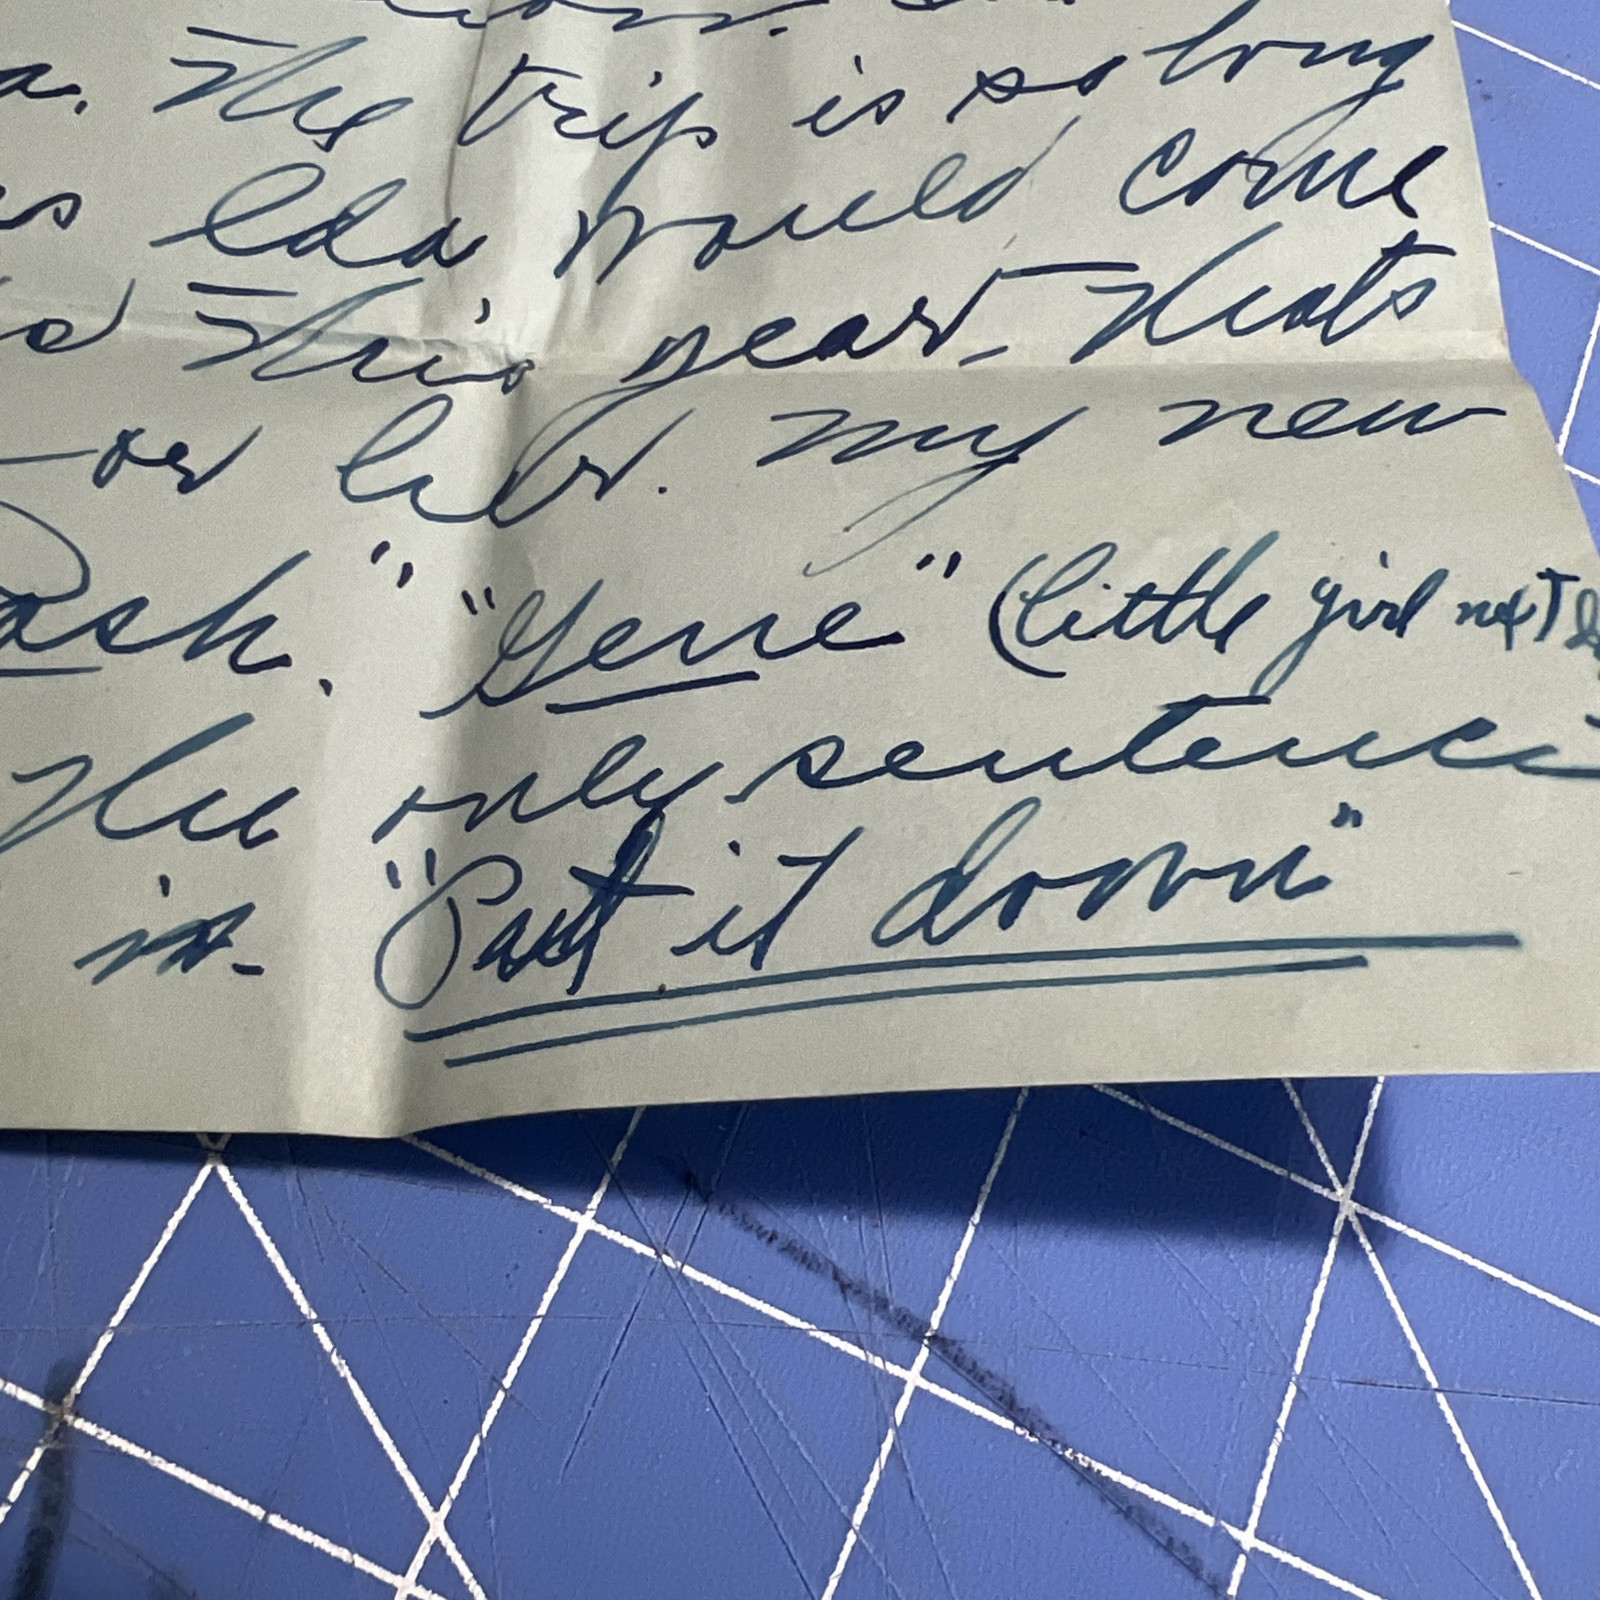 The trip is so long
Ida would come
this year. That's
or her. My new
" "Gene" (little girl next
The only sentence
is. "Put it down"